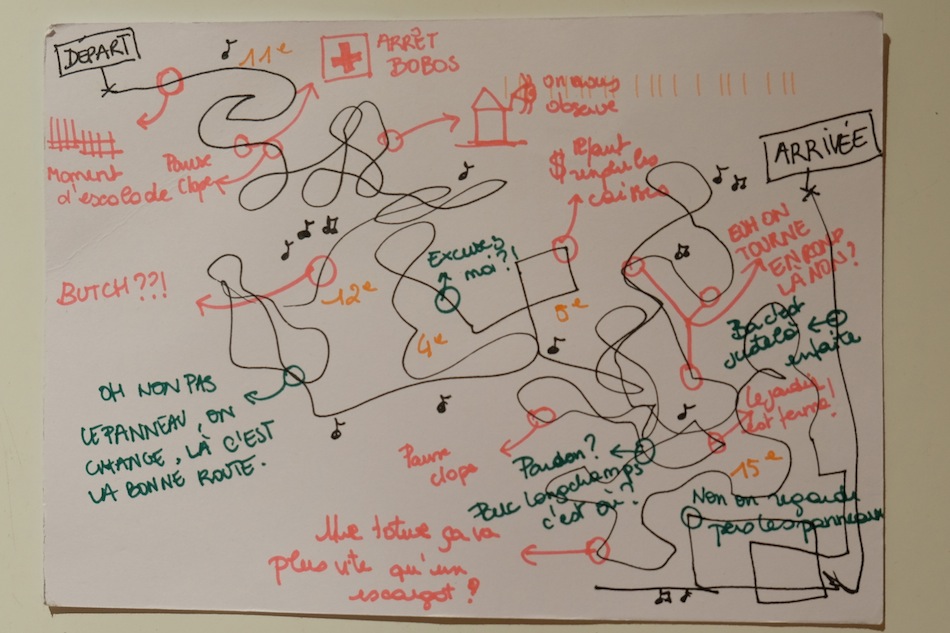 DÉPART
11e
ARRÊT
BOBOS
on nous
observe
Moment
d'escalade
Pause
clope
$ Il faut
rendre les
caisses
ARRIVÉE
EUH ON
TOURNE
EN ROND
LÀ NON ?
BUTCH ??!
12e
Excusez
moi ?!
4e
5e
Ba c'est
juste là
enfaite
OH NON PAS
LE PANNEAU, ON
CHANGE, LÀ C'EST
LA BONNE ROUTE.
Pause
clope
Le jardin
est fermé !
15e
Pardon ?
Longchamps
c'est où ?
Non on regarde
pas les panneaux
Une tortue ça va
plus vite qu'un
escargot ?